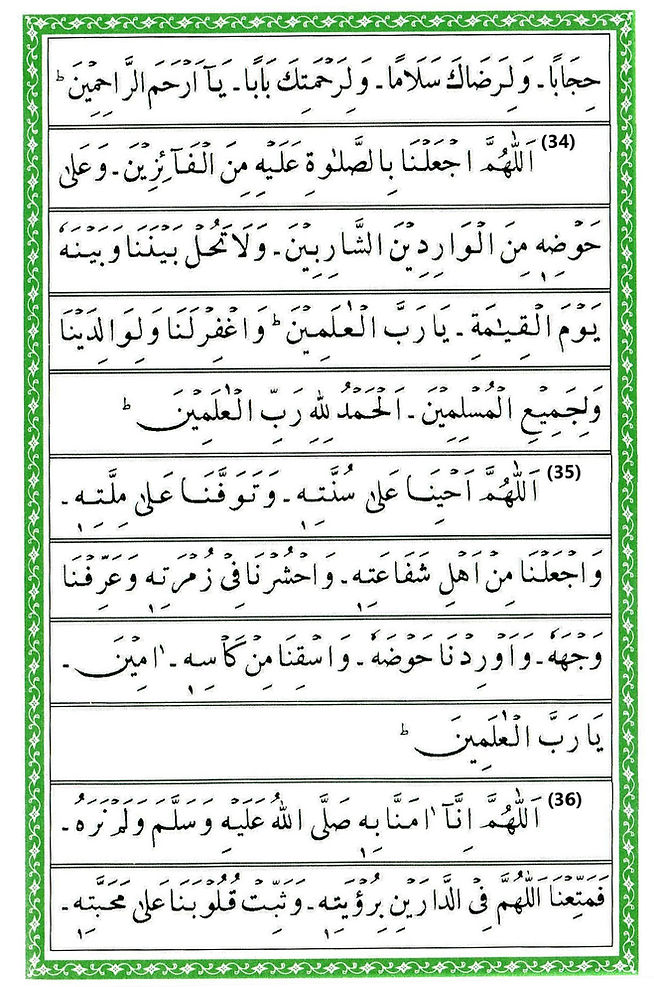 حِجَابًا۔ وَلِرَضَاكَ سَلَامًا۔ وَلِرَحْمَتِكَ بَابًا۔ يَآ اَرْحَمَ الرَّاحِمِيْنَ ؕ
(34) اَللّٰهُمَّ اجْعَلْنَا بِالصَّلٰوةِ عَلَيْهِ مِنَ الْفَآئِزِيْنَ۔ وَعَلٰى
حَوْضِهٖ مِنَ الْوَارِدِيْنَ الشَّارِبِيْنَ۔ وَلَا تَحُلْ بَيْنَنَا وَبَيْنَهٗ
يَوْمَ الْقِيٰمَةِ۔ يَا رَبَّ الْعٰلَمِيْنَ ؕ وَاغْفِرْ لَنَا وَلِوَالِدَيْنَا
وَلِجَمِيْعِ الْمُسْلِمِيْنَ۔ اَلْحَمْدُ لِلّٰهِ رَبِّ الْعٰلَمِيْنَ ؕ
(35) اَللّٰهُمَّ اَحْيِنَا عَلٰى سُنَّتِهٖ۔ وَتَوَفَّنَا عَلٰى مِلَّتِهٖ۔
وَاجْعَلْنَا مِنْ اَهْلِ شَفَاعَتِهٖ۔ وَاحْشُرْنَا فِيْ زُمْرَتِهٖ وَعَرِّفْنَا
وَجْهَهٗ۔ وَاَوْرِدْنَا حَوْضَهٗ۔ وَاسْقِنَا مِنْ كَاْسِهٖ۔ اٰمِيْنَ۔
يَا رَبَّ الْعٰلَمِيْنَ ؕ
(36) اَللّٰهُمَّ اِنَّآ اٰمَنَّا بِهٖ صَلَّى اللّٰهُ عَلَيْهِ وَسَلَّمَ وَلَمْ نَرَهُ۔
فَمَتِّعْنَا اَللّٰهُمَّ فِي الدَّارَيْنِ بِرُؤْيَتِهٖ۔ وَثَبِّتْ قُلُوْبَنَا عَلٰى مَحَبَّتِهٖ۔